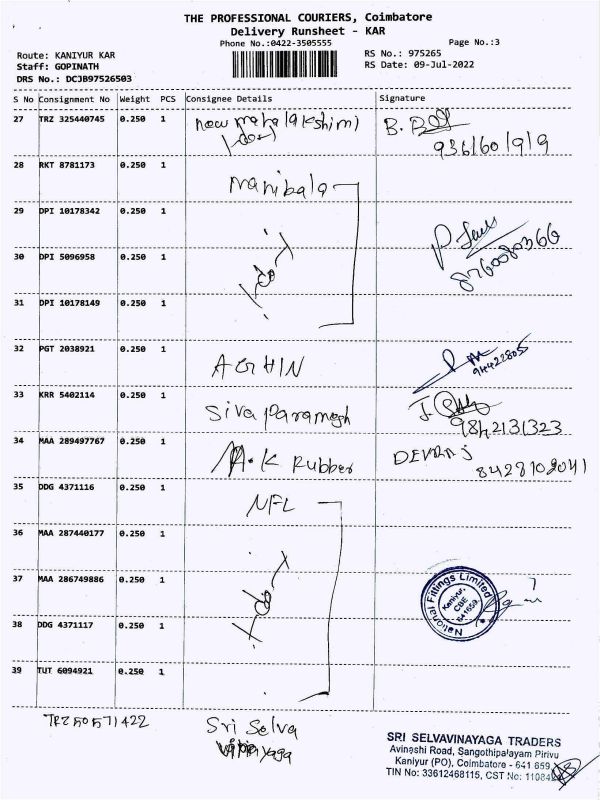 THE PROFESSIONAL COURIERS, Coimbatore
Delivery Runsheet - KAR
Phone No.:0422-3505555 Page No.:3
Route: KANIYUR KAR RS No.: 975265
Staff: GOPINATH RS Date: 09-Jul-2022
DRS No.: DCJB97526503
S No Consignment No Weight PCS Consignee Details Signature
27 TRZ 325440745 0.250 1 New mahalakshimi B.
9361601919
28 RKT 8781173 0.250 1 manibala
29 DPI 10178342 0.250 1
30 DPI 5096958 0.250 1 8760080366
31 DPI 10178149 0.250 1
32 PGT 2038921 0.250 1
33 KRR 5402114 0.250 1 Siva Paramesh
9842131323
34 MAA 289497767 0.250 1 A.K Rubber DEVRAJ
8428102041
35 DDG 4371116 0.250 1 NFL
36 MAA 287440177 0.250 1
37 MAA 286749886 0.250 1 National Fittings Limited
Kaniyur,
CBE
641659.
38 DDG 4371117 0.250 1
39 TUT 6094921 0.250 1
TRZ50571422 Sri Selva
Vinayaga
SRI SELVAVINAYAGA TRADERS
Avinashi Road, Sangothipalayam Pirivu
Kaniyur (PO), Coimbatore - 641 659.
TIN No: 33612468115, CST No: